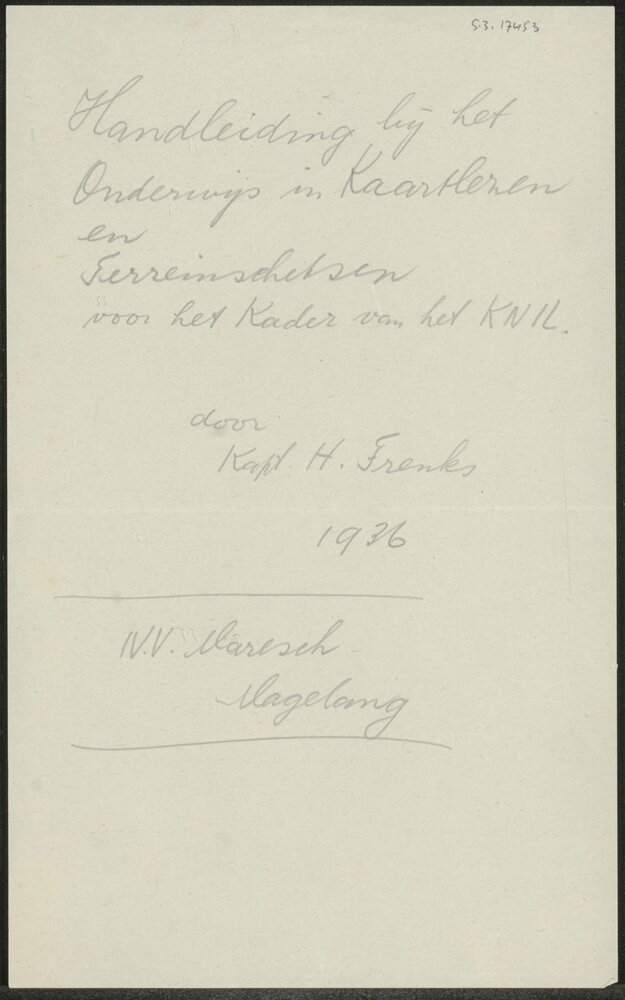 53.17453
Handleiding bij het
Onderwijs in Kaartlezen
en
Terreinschetsen
voor het Kader van het KNIL.
door
Kapt. H. Frenks
1936
N.V. Maresch
Magelang